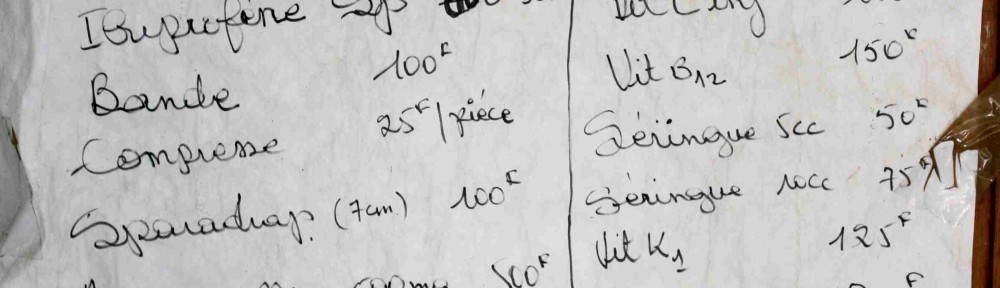 Ibuprofène
Bande 100F
Compresse 25F/pièce
Sparadrap (7cm) 100F
500F
Vit B12 150F
Séringue 5cc 50F
Séringue 10cc 75F
Vit K1 125F